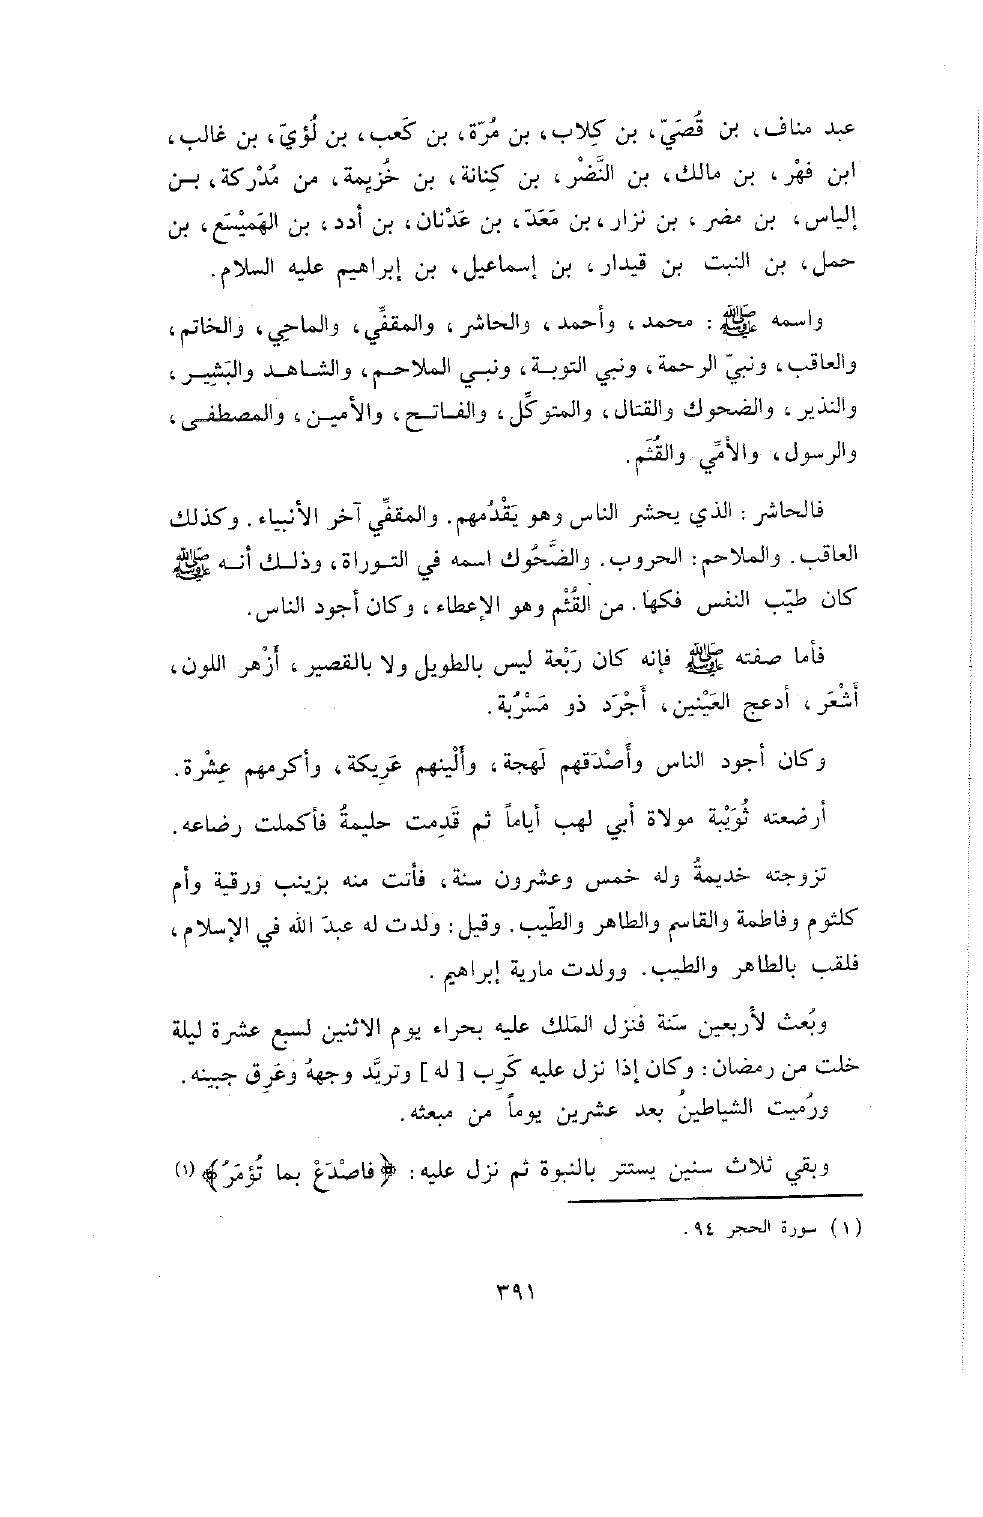 عبد مناف، بن قُصَيّ، بن كِلاب، بن مُرّة، بن كَعب، بن لُؤيّ، بن غالب،
ابن فهْر، بن مالك، بن النَّضْر، بن كِنانة، بن خُزيمة، من مُدْركة، بن
إلياس، بن مضر، بن نزار، بن مَعَدّ، بن عَدْنان، بن أدد، بن الهَمَيْسَع، بن
حمل، بن النبت بن قيدار، بن إسماعيل، بن إبراهيم عليه السلام.
واسمه ﷺ : محمد، وأحمد، والحاشر، والمقفِّي، والماحِي، والخاتم،
والعاقب، ونبيّ الرحمة، ونبي التوبة، ونبي الملاحم، والشاهد والبَشِير،
والنذير، والضحوك والقتال، والمتوكِّل، والفاتح، والأمين، والمصطفى،
والرسول، والأمِّي والقُثَم.
فالحاشر : الذي يحشر الناس وهو يَقْدُمهم. والمقفِّي آخر الأنبياء. وكذلك
العاقب. والملاحم: الحروب. والضَّحُوك اسمه في التوراة، وذلك أنه ﷺ
كان طيّب النفس فكها. من القُثْم وهو الإعطاء، وكان أجود الناس.
فأما صفته ﷺ فإنه كان رَبْعة ليس بالطويل ولا بالقصير، أزْهر اللون،
أشْعَر، أدعج العَيْنين، أجْرَد ذو مَسْرُبة.
وكان أجود الناس وأصْدَقهم لَهجة، وألْينهم عَرِيكة، وأكرمهم عِشْرة.
أرضعته ثُوَيْبة مولاة أبي لهب أياماً ثم قَدِمت حليمةُ فأكملت رضاعه.
تزوجته خديمةُ وله خمس وعشرون سنة، فأتت منه بزينب ورقية وأم
كلثوم وفاطمة والقاسم والطاهر والطّيب. وقيل: ولدت له عبدَ الله في الإسلام،
فلقب بالطاهر والطيب. وولدت مارية إبراهيم.
وبُعث لأربعين سَنة فنزل المَلك عليه بحراء يوم الاثنين لسبع عشرة ليلة
خلت من رمضان: وكان إذا نزل عليه كَرِب [ له ] وتربَّد وجههُ وعَرِق جبينه.
ورُميت الشياطينُ بعد عشرين يوماً من مبعثه.
وبقي ثلاث سنين يستتر بالنبوة ثم نزل عليه: ﴿فاصْدَعْ بما تُؤمَرُ﴾ (١)
(١) سورة الحجر ٩٤.
٣٩١